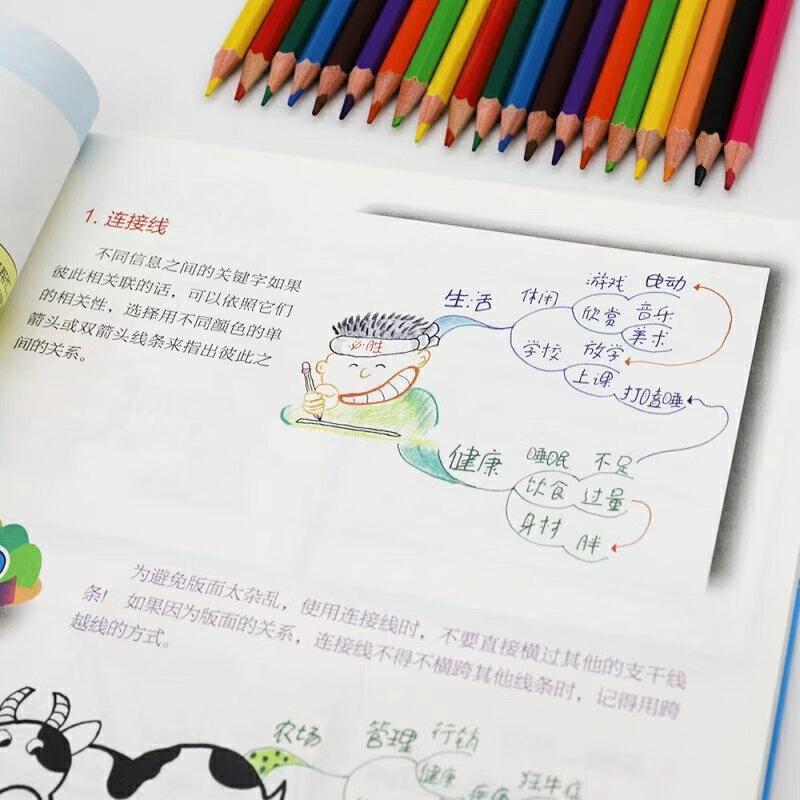 1. 连接线
不同信息之间的关键字如果
彼此相关联的话，可以依照它们
的相关性，选择用不同颜色的单
箭头或双箭头线条来指出彼此之
间的关系。
必胜
生活 休闲 游戏 电动
欣赏 音乐
美术
学校 放学
上课 打瞌睡
健康 睡眠 不足
饮食 过量
身材 胖
为避免版面太杂乱，使用连接线时，不要直接横过其他的支干线
条！如果因为版面的关系，连接线不得不横跨其他线条时，记得用跨
越线的方式。
农场 管理 行销
健康 疾病 狂牛症